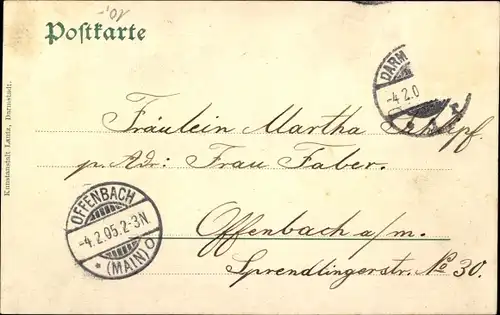 10,-
Postkarte
Kunstanstalt Lautz, Darmstadt.
DARM
-4.2.0
Fräulein Martha
p. Adr: Frau Faber.
OFFENBACH
-4.2.05.2-3N.
* (MAIN) O
Offenbach a/m.
Sprendlingerstr. No 30.